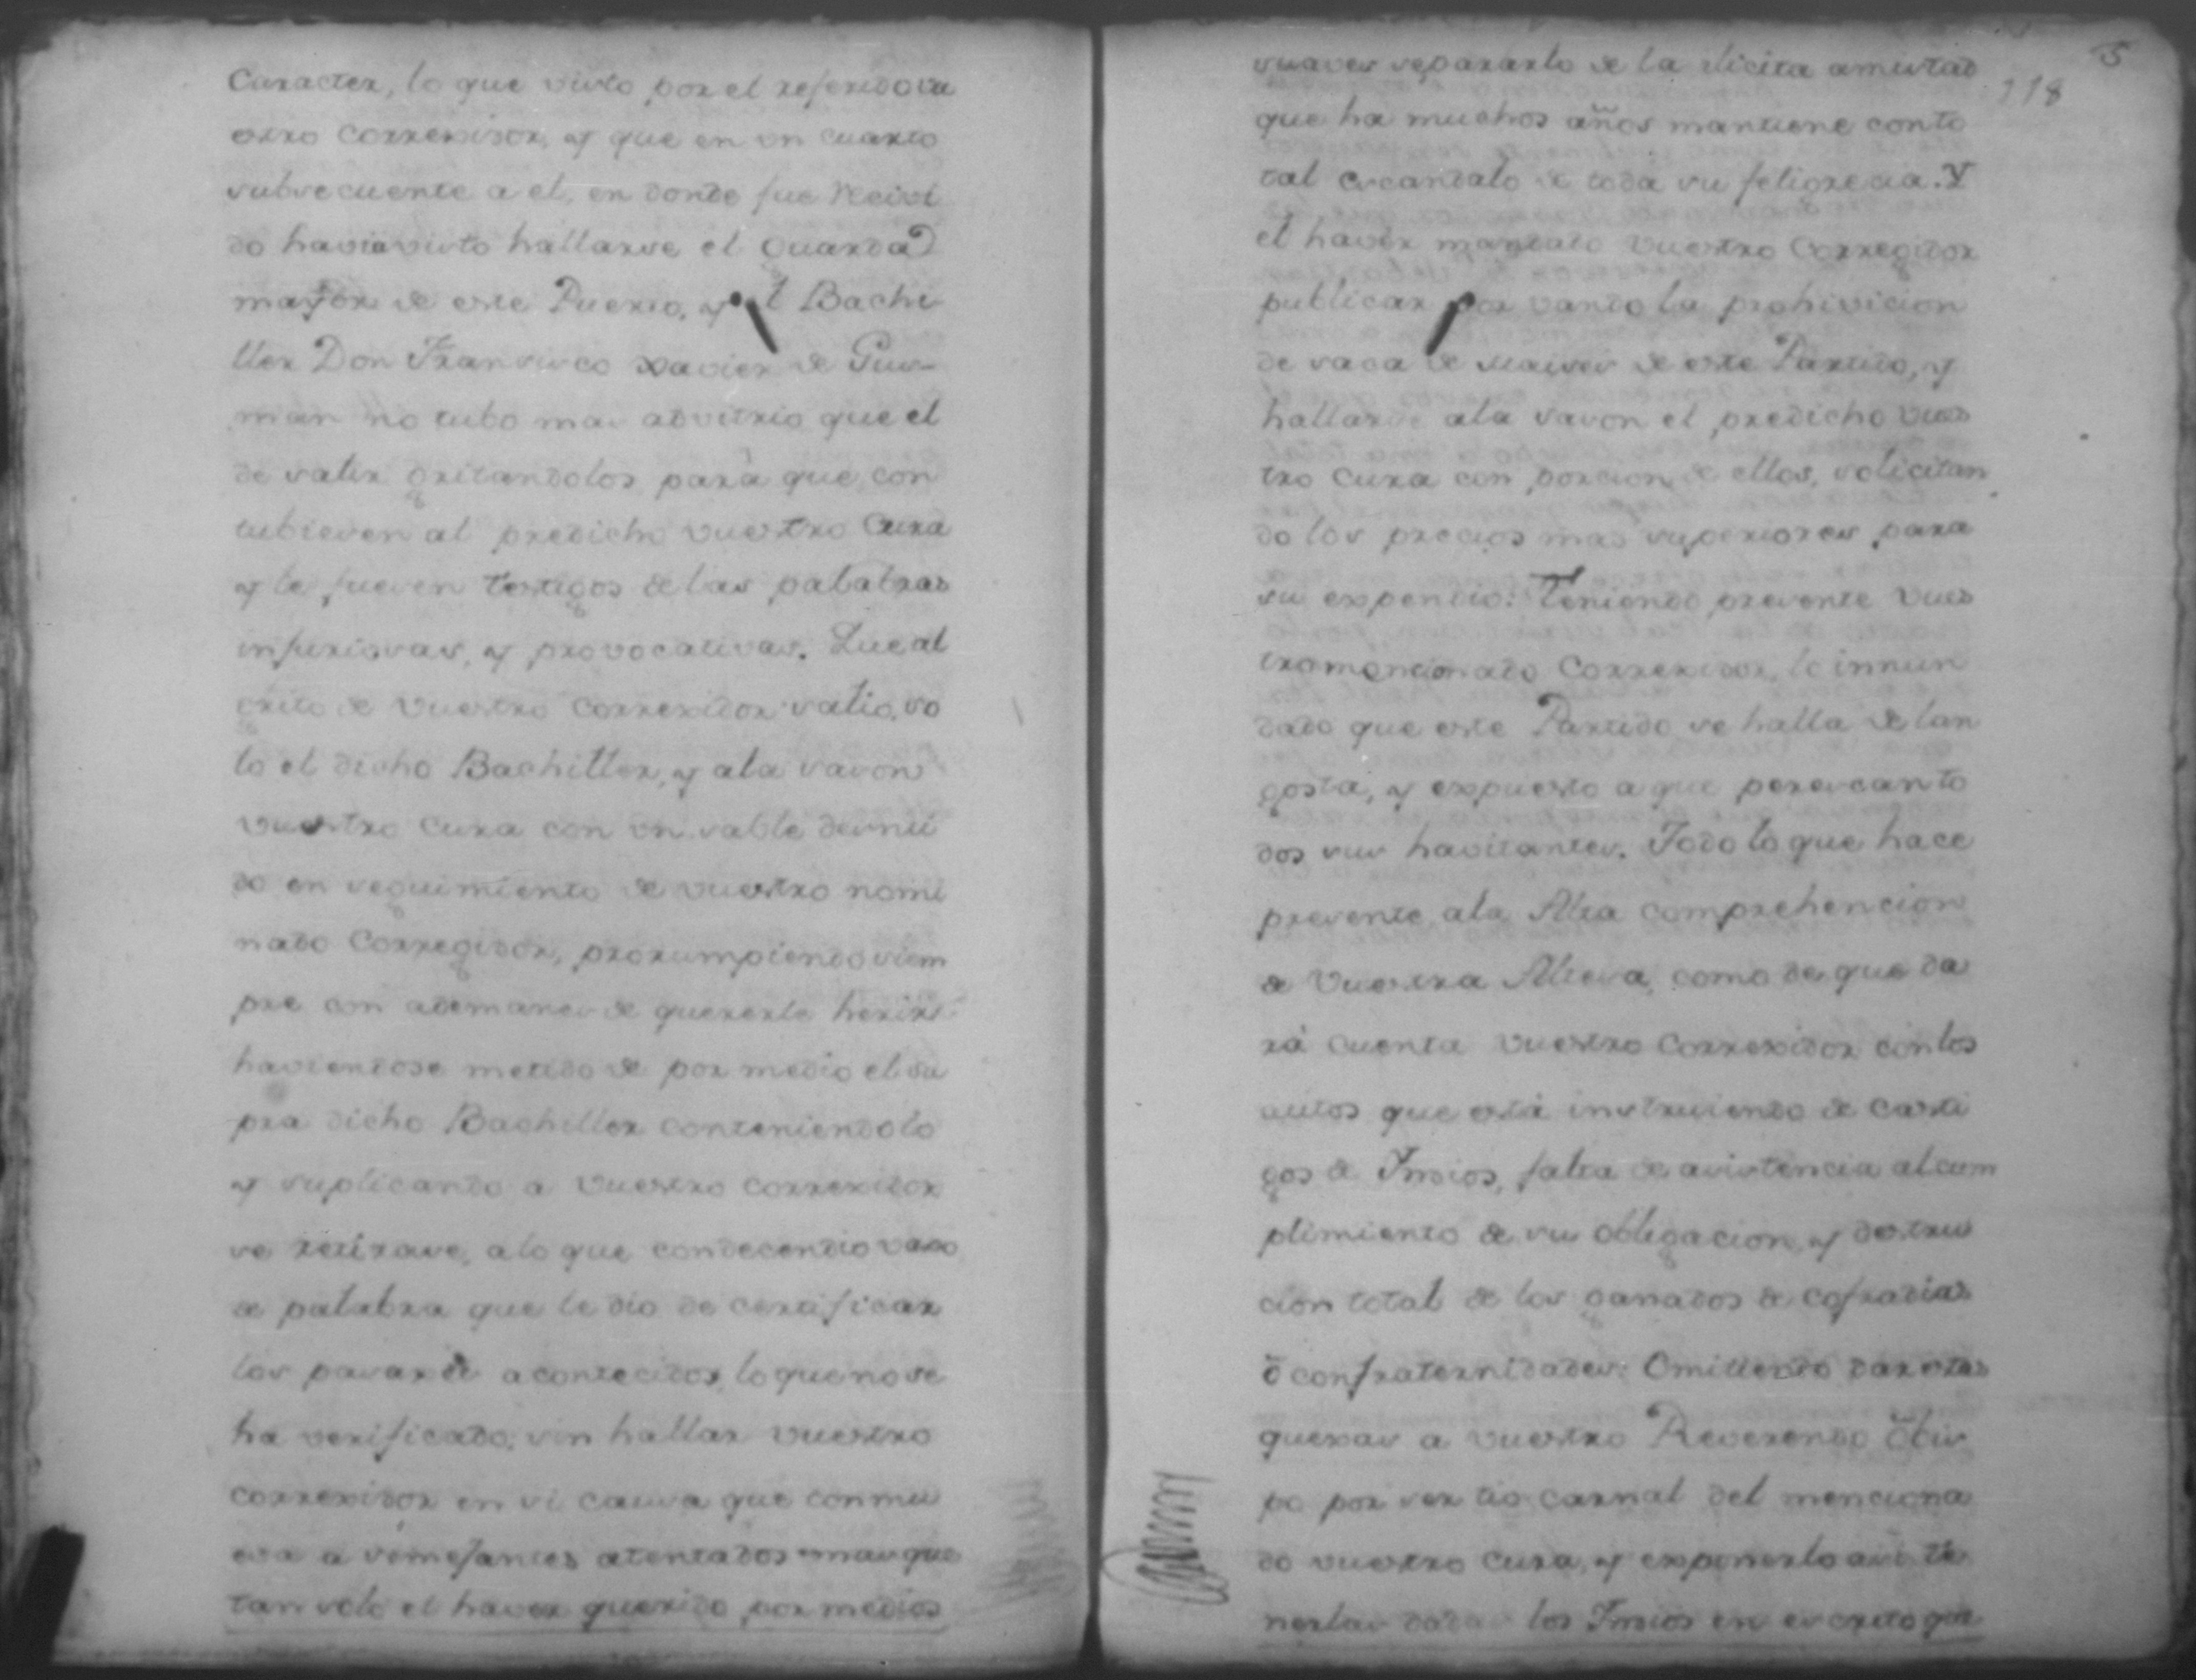 Caracter, lo que visto por el referido vu
estro Correxidor, y que en un cuarto
subsecuente a el, en donde fue Recivi
do havia visto hallarse el Guarda
mayor de este Puerto, y el Bachi
ller Don Fransisco Xavier de Gus-
man no tubo mas advitrio que el
de salir gritandolos para que con
tubiesen al predicho vuestro Cura
y le fuesen testigos de las palabras
injuriosas, y provocativas. Que al
grito de Vuestro Correxidor salio, so
lo el dicho Bachiller, y ala sason
vuestro Cura con un sable desnu
do en seguimiento de vuestro nomi
nado Corregidor, prorumpiendo siem
pre con ademanes de quererle herir:
haviendose metido de por medio el su
pra dicho Bachiller conteniendolo
y suplicando a Vuestro Correxidor
se retirase, a lo que condecendio vaxo
de palabra que le dio de certificar
los pasajes acontecidos, lo que no se
ha verificado, sin hallar vuestro
Correxidor en si causa que conmu
eva a semejantes atentados mas que
tan solo el haver querido por medios
5
118
suaves separarlo de la ilicita amistad
que ha muchos años mantiene con to
tal escandalo de toda su feligrecia. Y
el haver mandado Vuestro Corregidor
publicar por vando la prohivicion
de saca de maises de este Partido, y
hallarse ala sason el predicho vues
tro Cura con porcion de ellos, solicitan
do los precios mas superiores para
su expendio: Teniendo presente Vues
tro mencionado Correxidor, lo innun
dado que este Partido se halla de lan
gosta, y expuesto a que perescan to
dos sus havitantes. Todo lo que hace
presente ala Alta comprehencion
de Vuestra Alteza, como de que da
rá cuenta Vuestro Correxidor con los
autos que está instruiendo de casti
gos de Indios, falta de asistencia al cum
plimiento de su obligacion, y destruc
cion total de los ganados de cofradias
ó confraternidades: Omitiendo dar estas
quexas a vuestro Reverendo Obis
po por ser tio carnal del menciona
do vuestro Cura, y exponerlo asi te
nerlas dadas los Indios en escrito que